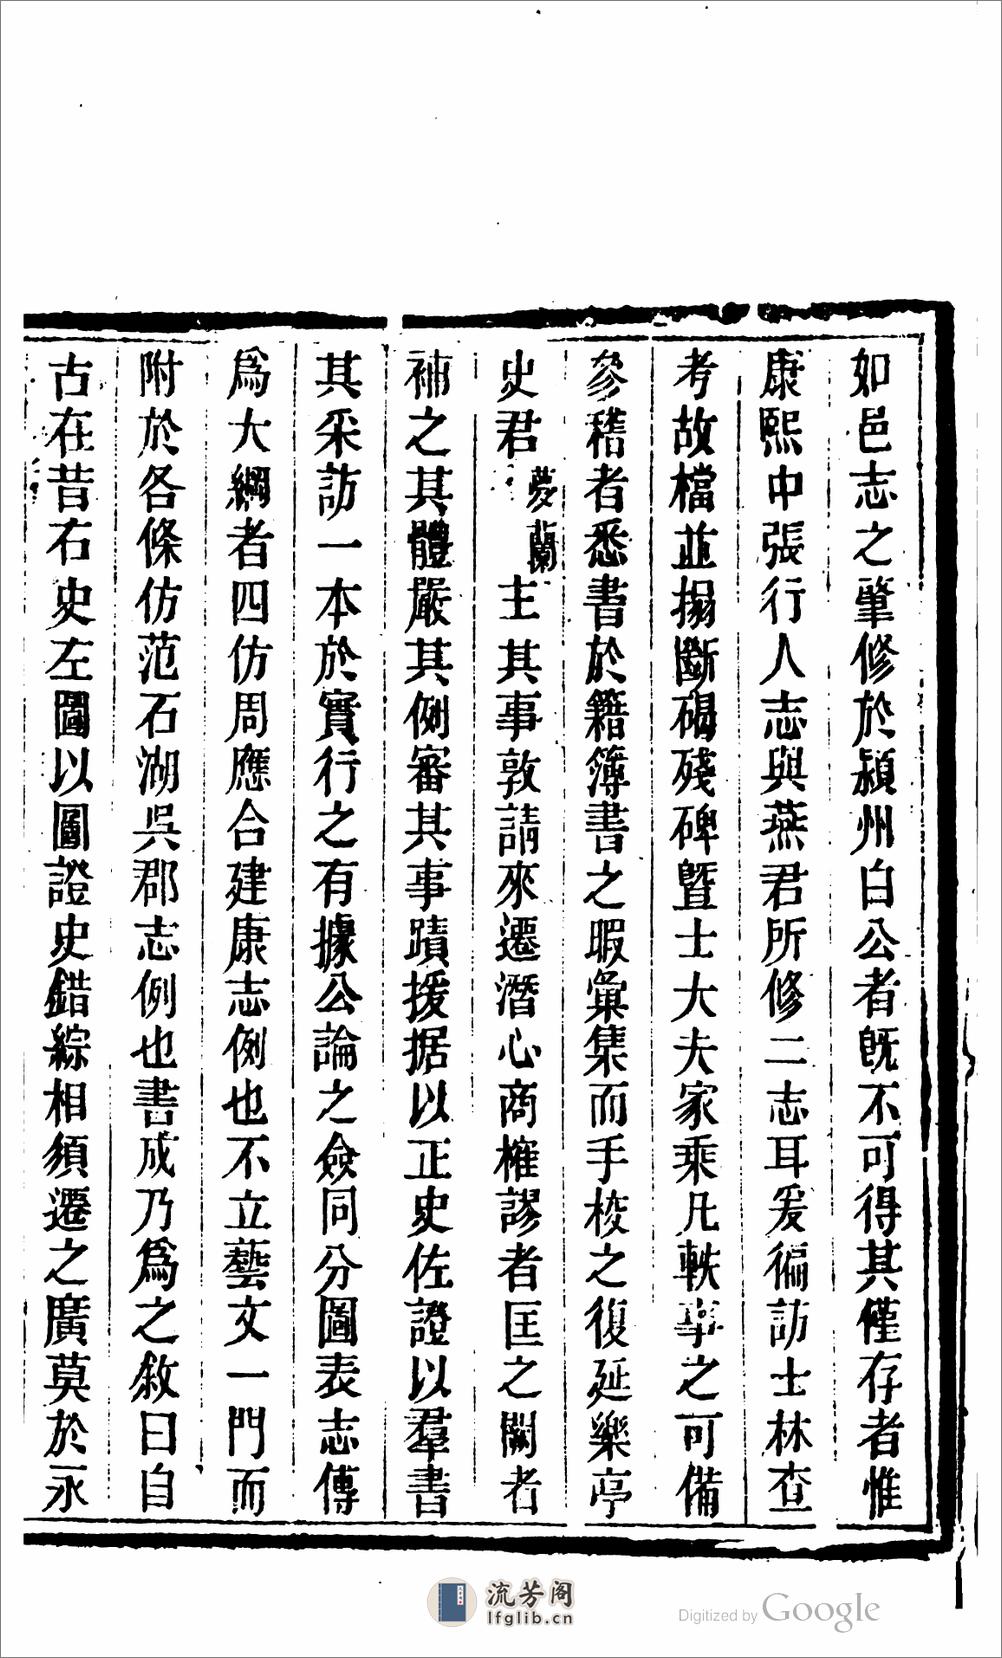 如邑志之肇修於潁州白公者旣不可得其僅存者惟
康熙中張行人志與燕君所修二志耳爰徧訪士林查
考故檔並搨斷碣殘碑曁士大夫家乘凡軼事之可備
參稽者悉書於籍簿書之暇彙集而手校之復延樂亭
史君夢蘭主其事敦請來遷潛心商榷謬者匡之闕者
補之其體嚴其例審其事蹟援据以正史佐證以羣書
其采訪一本於實行之有據公論之僉同分圖表志傳
爲大綱者四仿周應合建康志例也不立藝文一門而
附於各條仿范石湖吳郡志例也書成乃爲之敘曰自
古在昔右史左圖以圖證史錯綜相須遷之廣莫於永
流芳阁
lfglib.cn
Digitized by Google